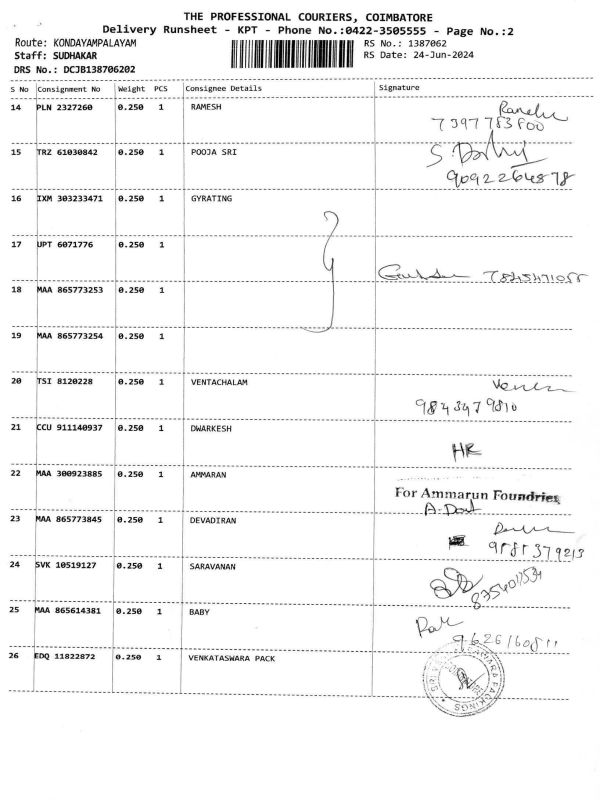 THE PROFESSIONAL COURIERS, COIMBATORE
Delivery Runsheet - KPT - Phone No.:0422-3505555 - Page No.:2
Route: KONDAYAMPALAYAM RS No.: 1387062
Staff: SUDHAKAR RS Date: 24-Jun-2024
DRS No.: DCJB138706202
S No Consignment No Weight PCS Consignee Details Signature
14 PLN 2327260 0.250 1 RAMESH
7397783800
15 TRZ 61030842 0.250 1 POOJA SRI
9092264878
16 IXM 303233471 0.250 1 GYRATING
17 UPT 6071776 0.250 1
18 MAA 865773253 0.250 1
19 MAA 865773254 0.250 1
20 TSI 8120228 0.250 1 VENTACHALAM
9843479810
21 CCU 911140937 0.250 1 DWARKESH
HR
22 MAA 300923885 0.250 1 AMMARAN
For Ammarun Foundries
23 MAA 865773845 0.250 1 DEVADIRAN
24 SVK 10519127 0.250 1 SARAVANAN
25 MAA 865614381 0.250 1 BABY
26 EDQ 11822872 0.250 1 VENKATASWARA PACK